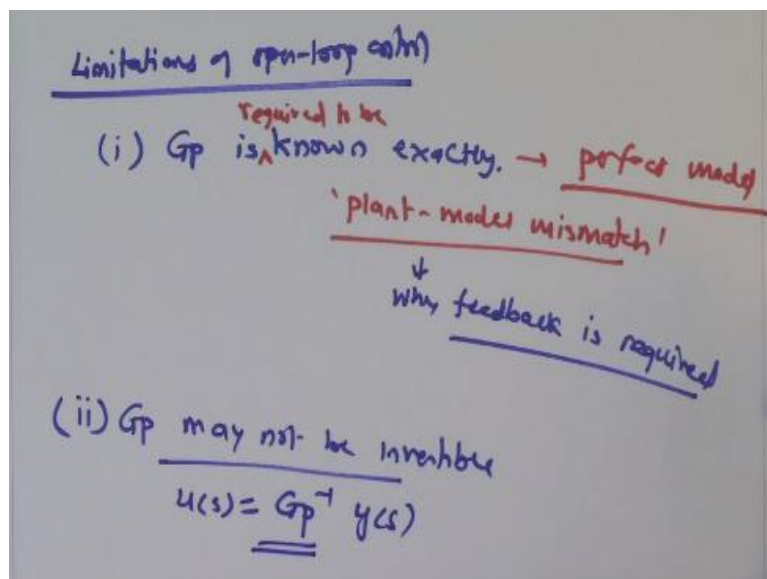 Limitations of open-loop control
required to be
(i) Gp is ^ known exactly. → perfect model
'plant-model mismatch'
↓
why feedback is required
(ii) Gp may not be invertible
u(s) = Gp⁻¹ y(s)